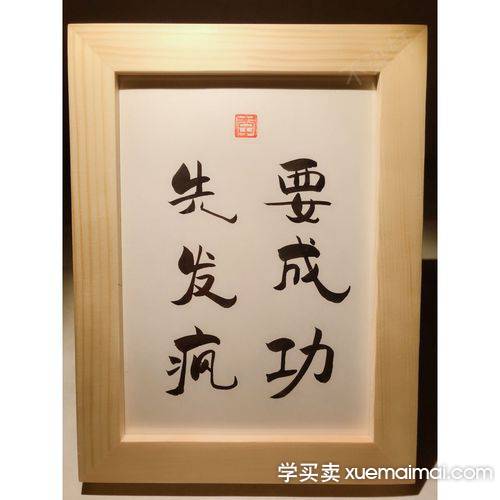 要成功
先发疯
学买卖 xuemaimai.com